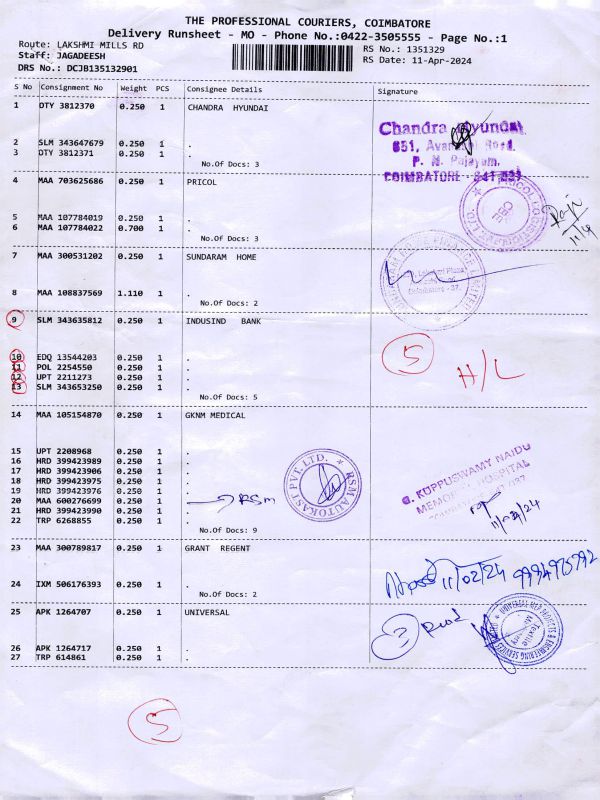 THE PROFESSIONAL COURIERS, COIMBATORE
Delivery Runsheet - MO - Phone No.:0422-3505555 - Page No.:1
Route: LAKSHMI MILLS RD
Staff: JAGADEESH
DRS No.: DCJB135132901
RS No.: 1351329
RS Date: 11-Apr-2024
S No Consignment No Weight PCS Consignee Details Signature
1 DTY 3812370 0.250 1 CHANDRA HYUNDAI
Chandra Hyundai
851, Avanashi Road,
P. N. Palayam,
COIMBATORE - 641 037
2 SLM 343647679 0.250 1 .
3 DTY 3812371 0.250 1 .
No.Of Docs: 3
4 MAA 703625686 0.250 1 PRICOL
5 MAA 107784019 0.250 1 .
6 MAA 107784022 0.700 1 .
No.Of Docs: 3
7 MAA 300531202 0.250 1 SUNDARAM HOME
8 MAA 108837569 1.110 1 .
No.Of Docs: 2
9 SLM 343635812 0.250 1 INDUSIND BANK
5 H/L
10 EDQ 13544203 0.250 1 .
11 POL 2254550 0.250 1 .
12 UPT 2211273 0.250 1 .
13 SLM 343653250 0.250 1 .
No.Of Docs: 5
14 MAA 105154870 0.250 1 GKNM MEDICAL
15 UPT 2208968 0.250 1 .
16 HRD 399423989 0.250 1 .
17 HRD 399423906 0.250 1 .
18 HRD 399423975 0.250 1 .
19 HRD 399423976 0.250 1 .
20 MAA 600276699 0.250 1 . RSM
21 HRD 399423990 0.250 1 .
22 TRP 6268855 0.250 1 .
No.Of Docs: 9
RSM AUTOKAST PVT. LTD.
G. KUPPUSWAMY NAIDU
MEMORIAL HOSPITAL
23 MAA 300789817 0.250 1 GRANT REGENT
24 IXM 506176393 0.250 1 .
No.Of Docs: 2
11/02/24
25 APK 1264707 0.250 1 UNIVERSAL
3
26 APK 1264717 0.250 1 .
27 TRP 614861 0.250 1 .
5